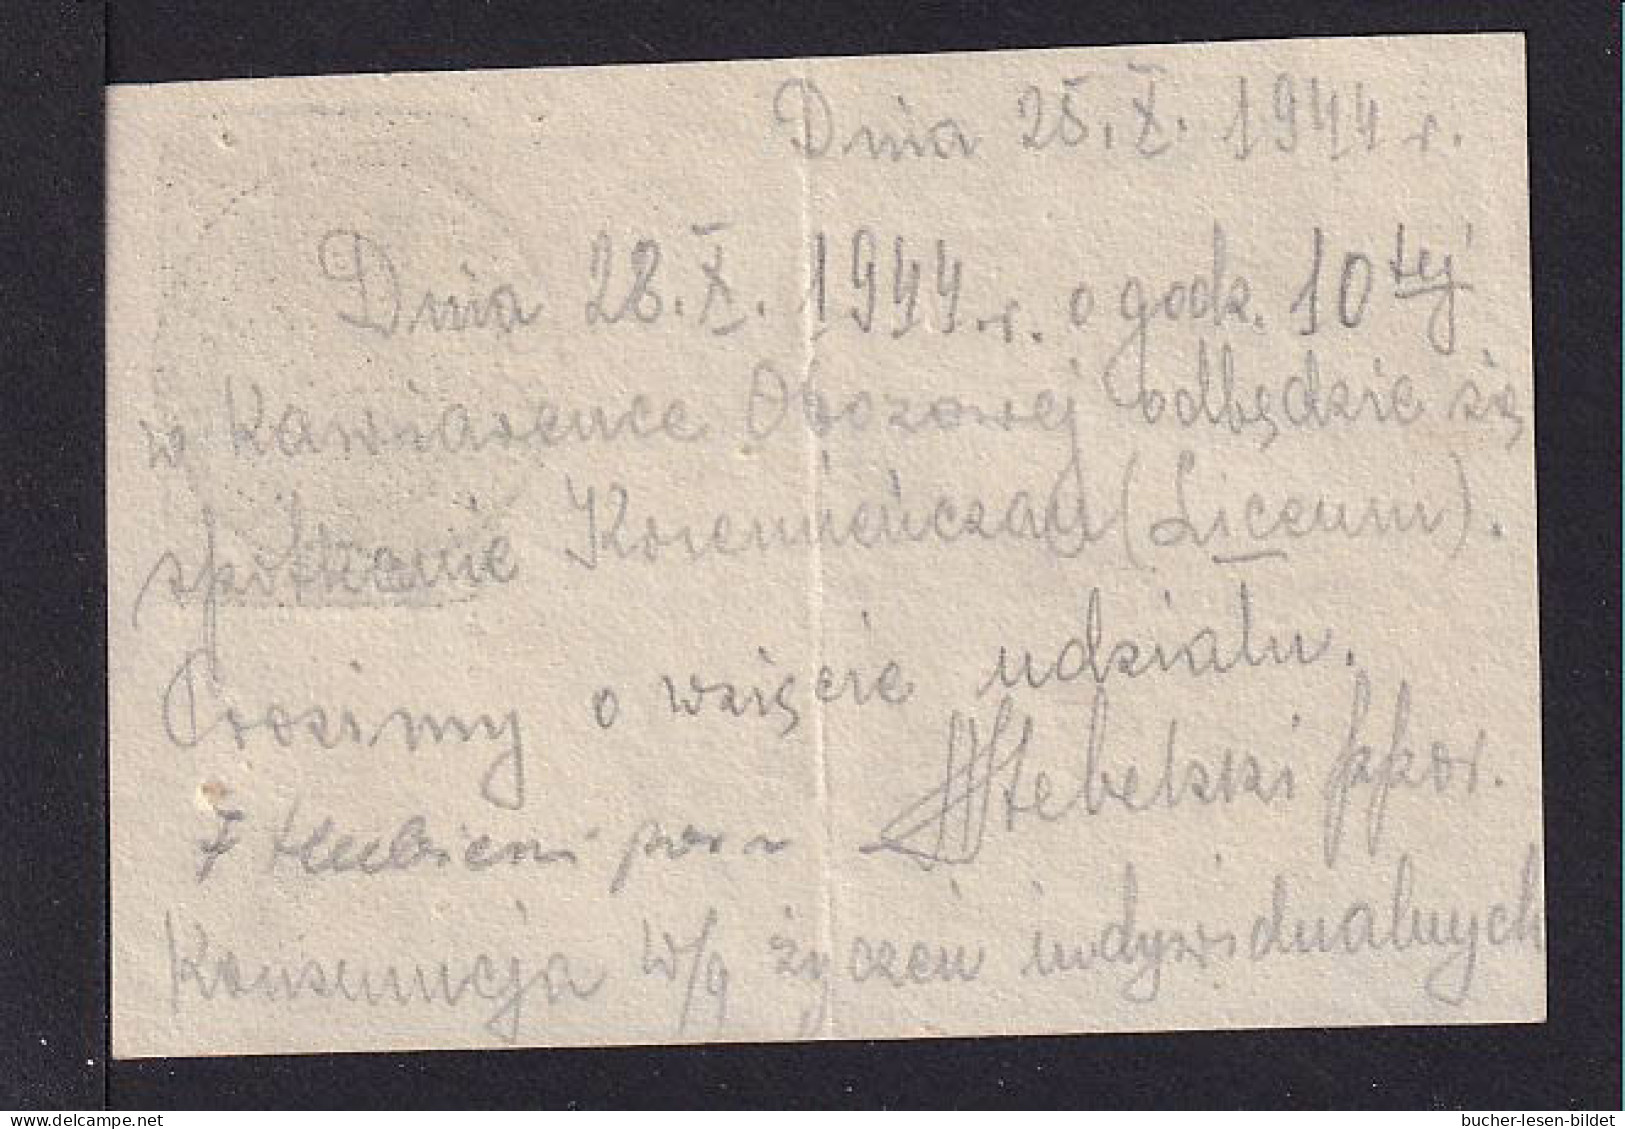 Dnia 25. X. 1944 r.
Dnia 28. X. 1944 r. o godz. 10tej
w Kawiarence Obozowej odbędzie się
spotkanie Krzemieńczan (Liceum).
Prosimy o wzięcie udziału.
Stebelski ppor.
por
Konsumcja w/g życzeń indywidualnych
bucher-lesen-bildet